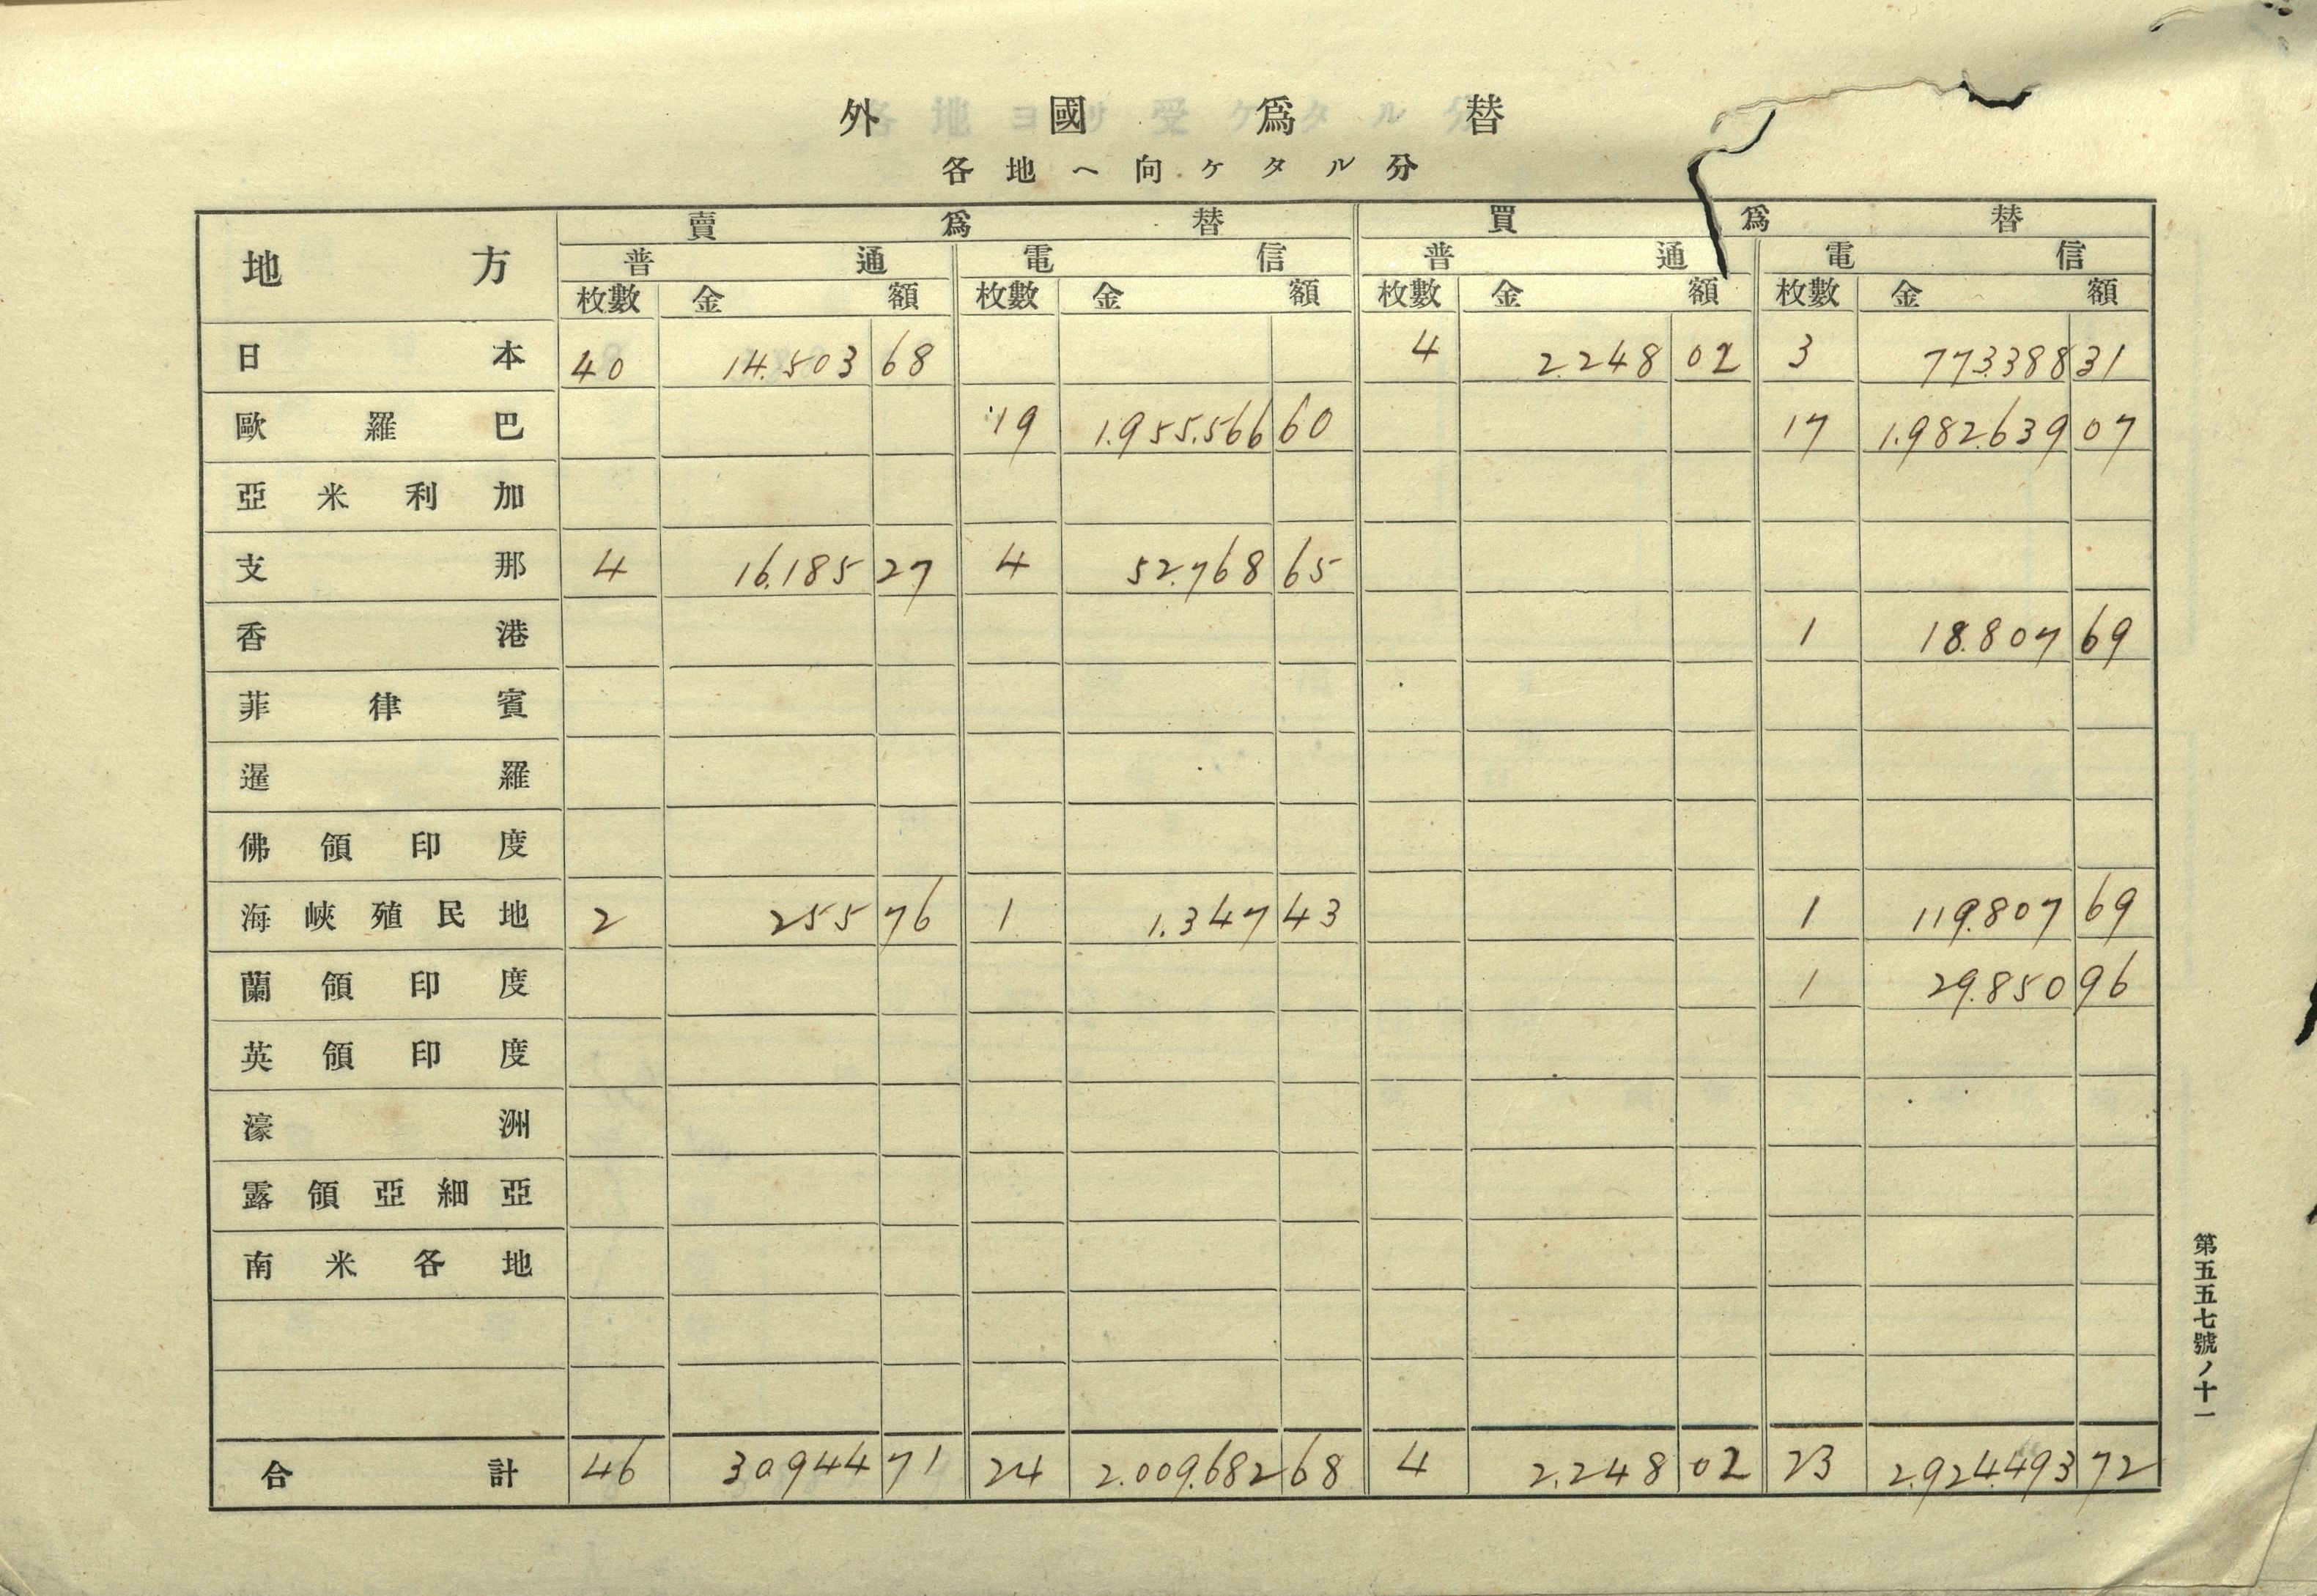 外國爲替
各地へ向ケタル分
地方 賣爲替 買爲替
普通 電信 普通 電信
枚數 金額 枚數 金額 枚數 金額 枚數 金額
日本 40 14.503 68 4 2.248 02 3 773.388 31
歐羅巴 19 1.955.566 60 17 1.982.639 07
亞米利加
支那 4 16.185 27 4 52.768 65
香港 1 18.807 69
菲律賓
暹羅
佛領印度
海峽殖民地 2 255 76 1 1.347 43 1 119.807 69
蘭領印度 1 29.850 96
英領印度
濠洲
露領亞細亞
南米各地
合計 46 30.944 71 24 2.009.682 68 4 2.248 02 23 2.924.493 72
第五五七號ノ十一